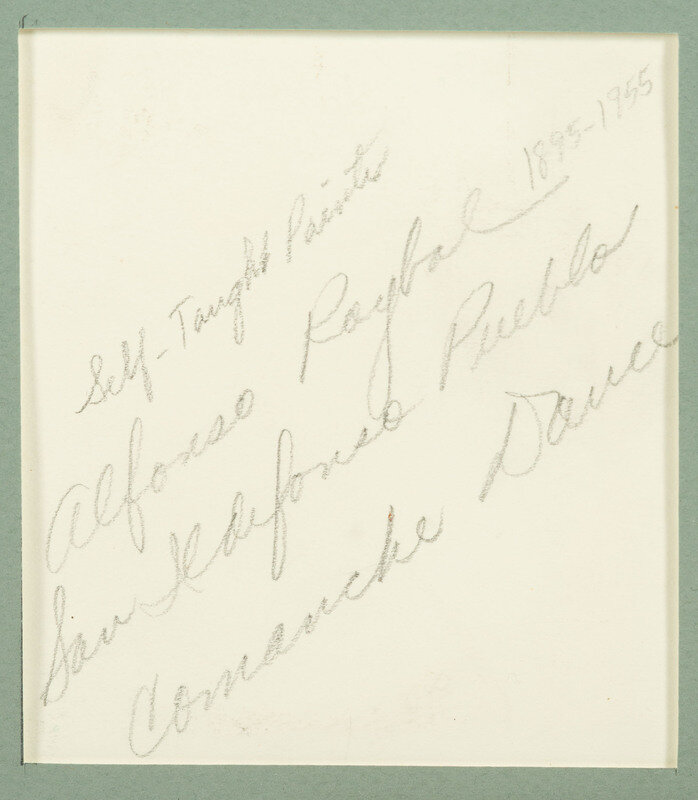 Self-Taught Painter
Alfonso Roybal 1895-1955
San Ildefonso Pueblo
Comanche Dance